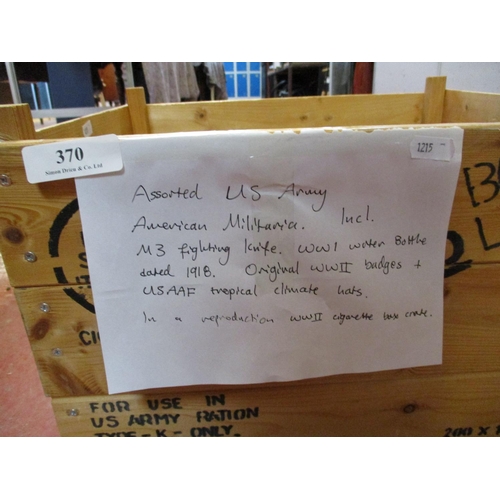 370
Simon Drice & Co. Ltd
1215
Assorted US Army
American Militaria. Incl.
M3 fighting knife. WW1 water Bottle
dated 1918. Original WWII badges +
USAAF tropical climate hats.
In a reproduction WWII cigarette box crate.
FOR USE IN
US ARMY RATION
TYPE-K-ONLY.
200 X